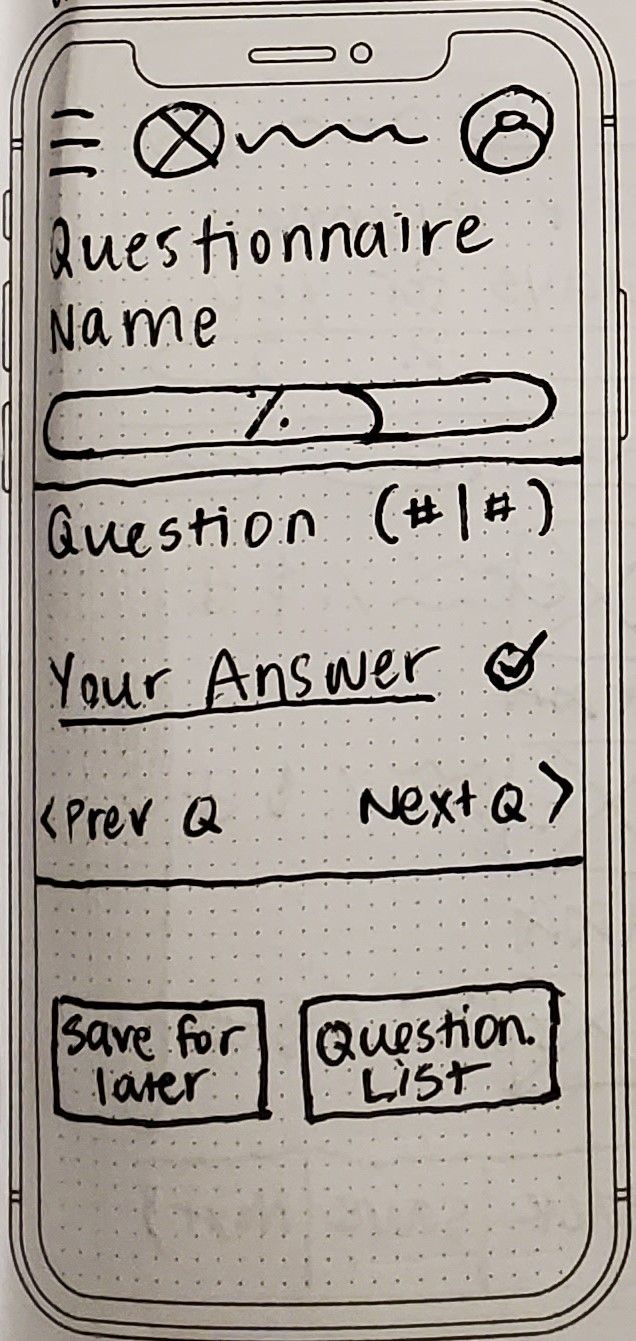 Questionnaire
Name
%
Question (#|#)
Your Answer
<Prev Q Next Q >
Save for
later
Question
List